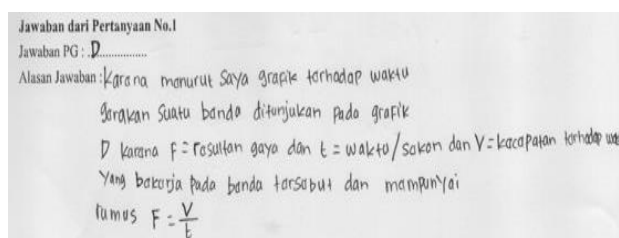 Jawaban dari Pertanyaan No.1
Jawaban PG : D
Alasan Jawaban : Karena menurut Saya grafik terhadap waktu
gerakan Suatu benda ditunjukan pada grafik
D karena F = resultan gaya dan t = waktu/sekon dan V = kecepatan terhadap
Yang bekerja pada benda tersebut dan mempunyai
rumus F = V/t